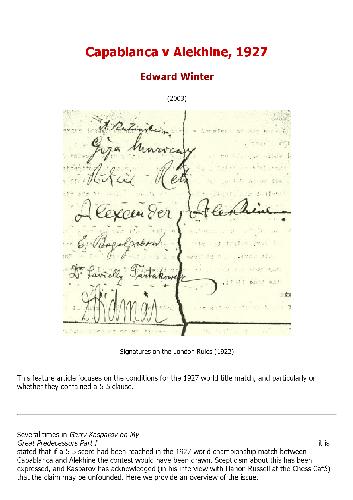 Capablanca v Alekhine, 1927
Edward Winter
(2003)
Géza Maróczy
Richard Réti
Alexander Alekhine
Dr Savielly Tartakower
Vidmar
Signatures on the London Rules (1922)
This feature article focuses on the conditions for the 1927 world title match, and particularly on
whether they contained a 5-5 clause.
Several times in Garry Kasparov on My
Great Predecessors Part I it is
stated that if a 5-5 score had been reached in the 1927 world championship match between
Capablanca and Alekhine the contest would have been drawn. Scepticism about this has been
expressed, and Kasparov has acknowledged (in his interview with Hanon Russell at the Chess Café)
that the claim may be unfounded. Here we provide an overview of the issue.